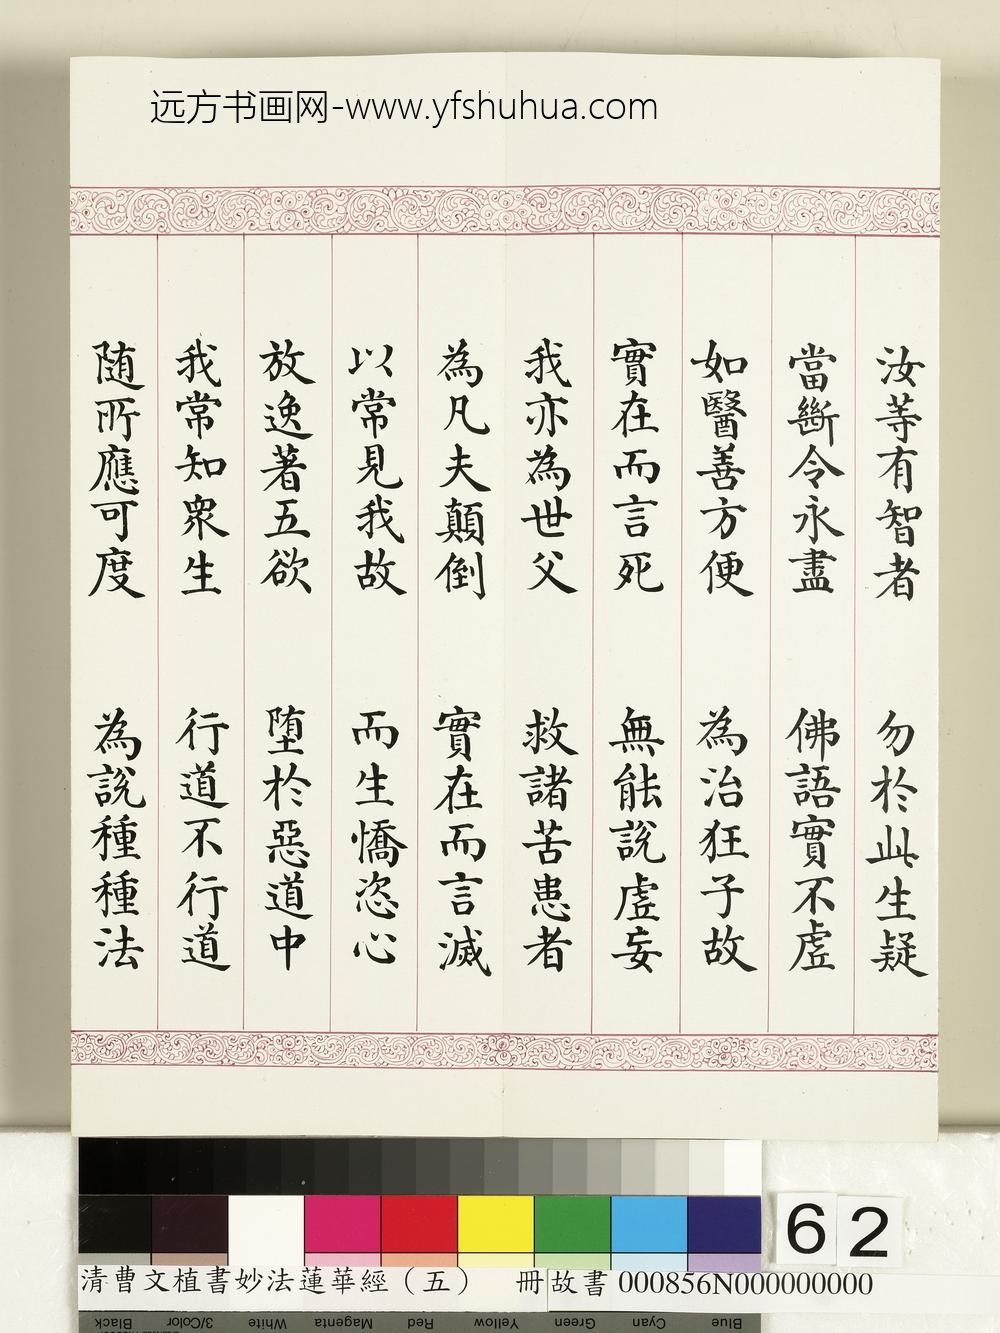 远方书画网-www.yfshuhua.com
汝等有智者 勿於此生疑
當斷令永盡 佛語實不虛
如醫善方便 為治狂子故
實在而言死 無能說虛妄
我亦為世父 救諸苦患者
為凡夫顛倒 實在而言滅
以常見我故 而生憍恣心
放逸著五欲 墮於惡道中
我常知眾生 行道不行道
随所應可度 為說種種法
62
清曹文植書妙法蓮華經（五） 冊故書 000856N000000000
Black 3/Color White Magenta Red Yellow Green Cyan Blue